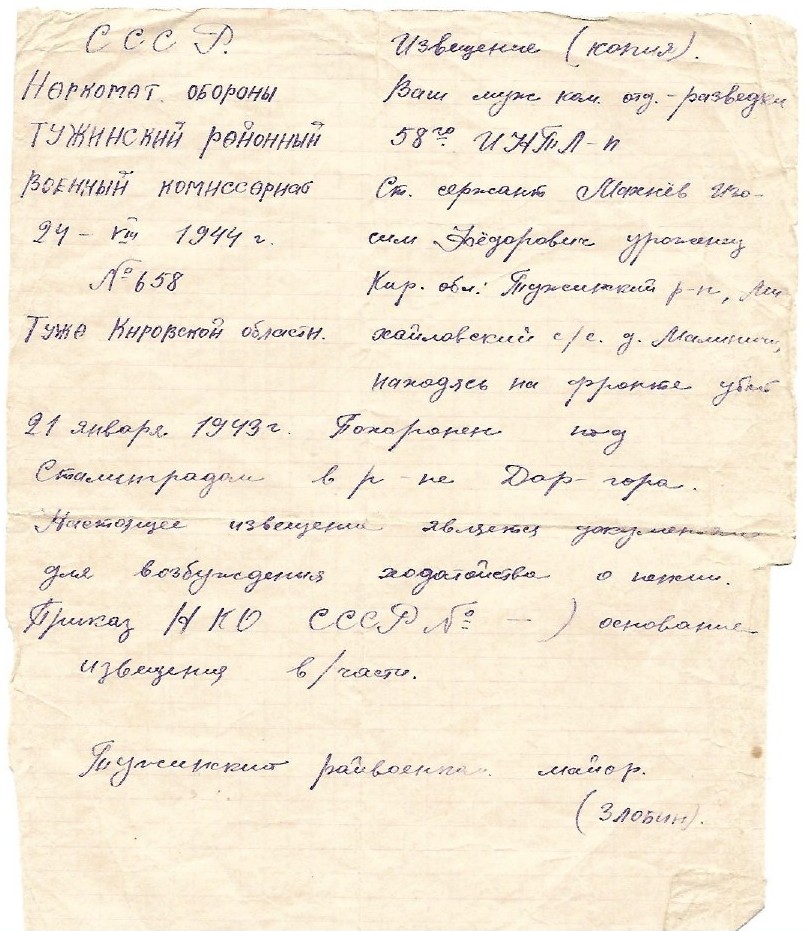 СССР.
Наркомат обороны
Тужинский районный
военный комиссариат
24 - VIII 1944 г.
№ 658
Тужа Кировской области.
Извещение (копия).
Ваш муж ком. отд. - разведки
58го ИПТАП-п
Ст. сержант Махнёв Изо-
сим Фёдорович уроженец
Кир. обл: Тужинский р-н, Ми-
хайловский с/с. д. Малиничи,
находясь на фронте убит
21 января 1943 г. Похоронен под
Сталинградом в р-не Дар-гора.
Настоящее извещение является документом
для возбуждения ходатайства о пенсии.
Приказ НКО СССР № - ) основание
извещения в/части.
Тужинский райвоенком. майор.
(Злобин).